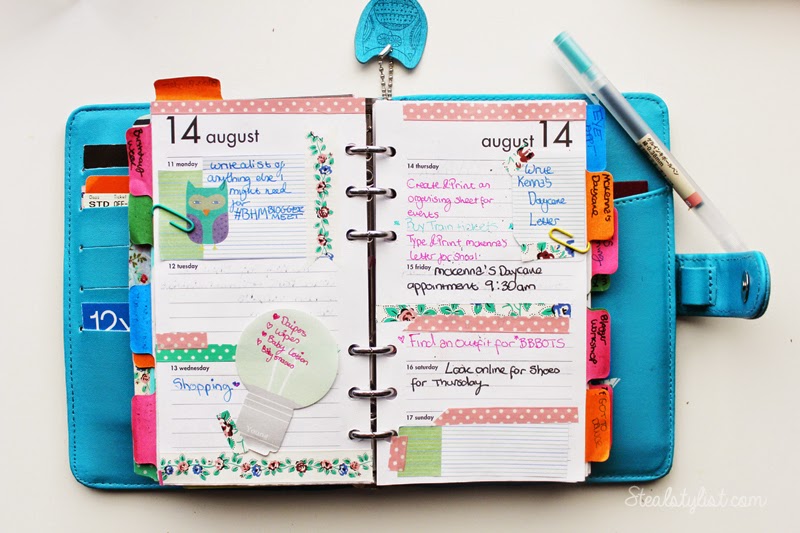 14 august
11 monday
write a list of
anything else I
might need
for
#BHMBLOGGER
MEET
12 tuesday
Daipos
Wipes
Baby Lotion
13 wednesday
Shopping
august 14
14 thursday
Create & Print an
organising sheet for
events
Buy Train tickets
Type & Print mckenna's
Letter for Shool.
Write
Kenna's
Daycare
Letter
15 friday
mckenna's Daycare
appointment 9:30am
Find an Outfit for "BBBOTS
16 saturday
Look online for Shoes
for Thursday
17 sunday
STD
12
Mckenna's
Daycare
Workshop
Stealstylist.com